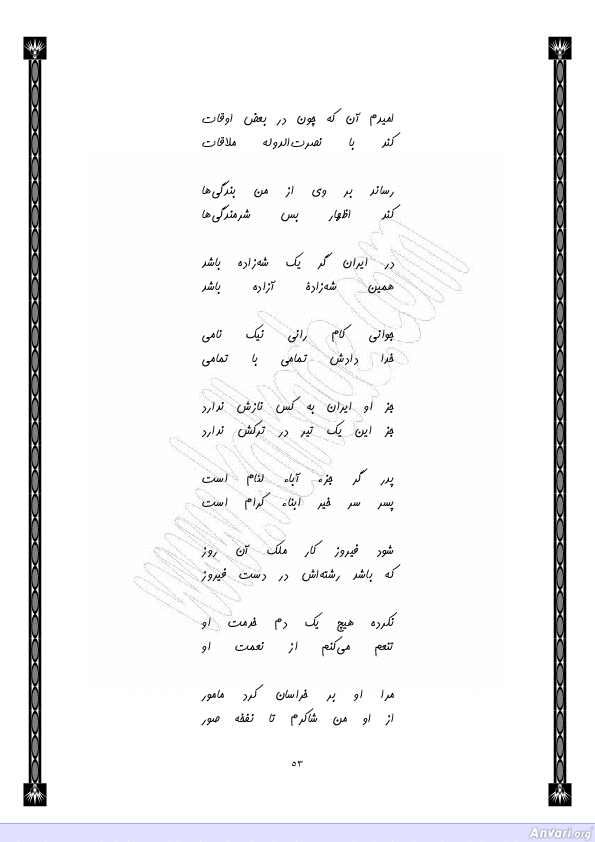 امیدم آن که چون در بعض اوقات
کند با نصرت‌الدوله ملاقات
رساند بر وی از من بندگی‌ها
کند اظهار بس شرمندگی‌ها
در ایران گر یک شه‌زاده باشد
همین شه‌زادهٔ آزاده باشد
جوانی کام رانی نیک نامی
خدا دادش تمامی با تمامی
جز او ایران به کس نازش ندارد
جز این یک تیر در ترکش ندارد
پدر گر جزء آباء لئام است
پسر سر خیر ابناء کرام است
شود فیروز کار ملک آن روز
که باشد رشته‌اش در دست فیروز
نکرده هیچ یک دم خدمت او
تنعم می‌کنم از نعمت او
مرا او بر خراسان کرد مامور
از او من شاکرم تا نفغه صور
۵۳
www.kafhade.com
Anvari.org